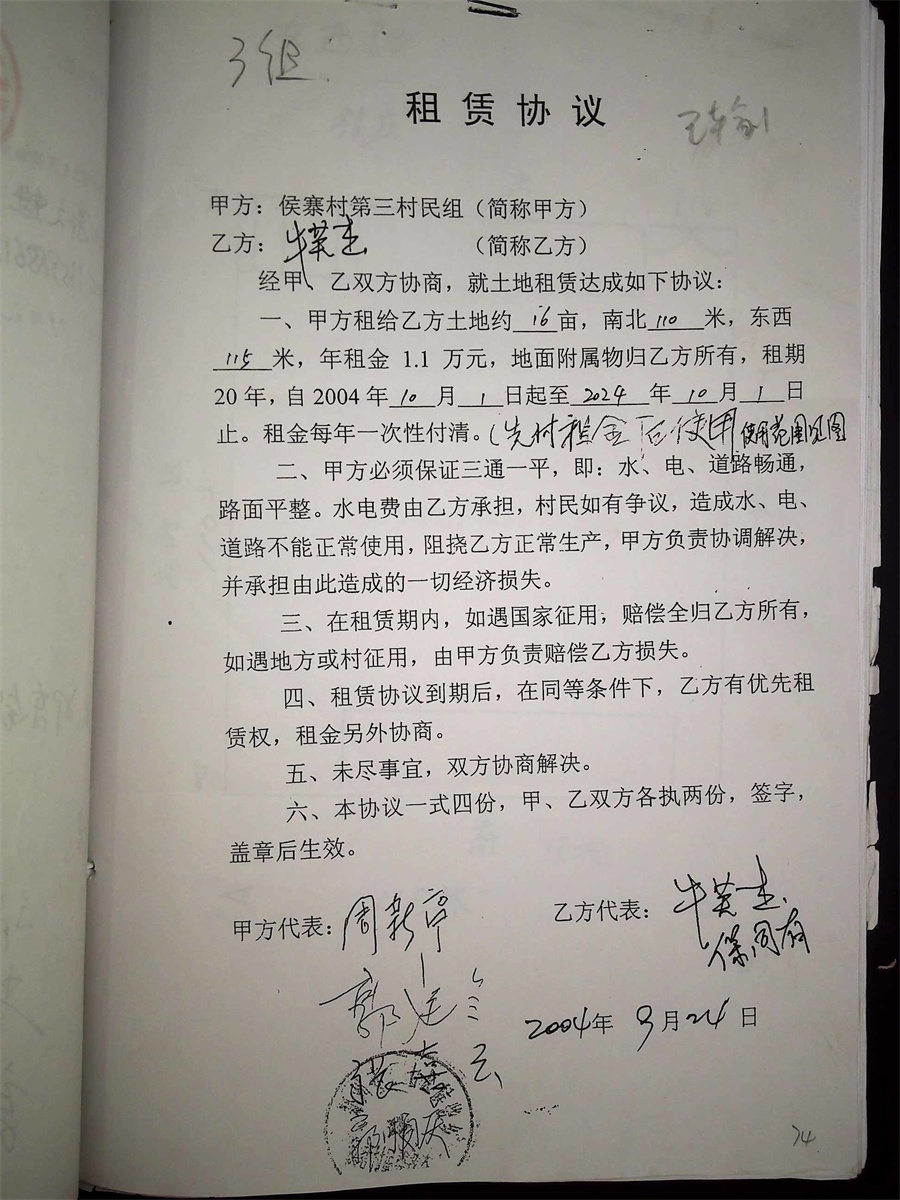 3组
租赁协议
甲方：侯寨村第三村民组（简称甲方）
乙方：牛英杰（简称乙方）
经甲、乙双方协商，就土地租赁达成如下协议：
一、甲方租给乙方土地约16亩，南北110米，东西
115米，年租金 1.1 万元，地面附属物归乙方所有，租期
20年，自2004年10月1日起至2024年10月1日
止。租金每年一次性付清。（先付租金后使用 使用范围见图
二、甲方必须保证三通一平，即：水、电、道路畅通，
路面平整。水电费由乙方承担，村民如有争议，造成水、电、
道路不能正常使用，阻挠乙方正常生产，甲方负责协调解决，
并承担由此造成的一切经济损失。
三、在租赁期内，如遇国家征用，赔偿全归乙方所有，
如遇地方或村征用，由甲方负责赔偿乙方损失。
四、租赁协议到期后，在同等条件下，乙方有优先租
赁权，租金另外协商。
五、未尽事宜，双方协商解决。
六、本协议一式四份，甲、乙双方各执两份，签字，
盖章后生效。
甲方代表：周新亭
乙方代表：牛英杰
2004年9月24日
74